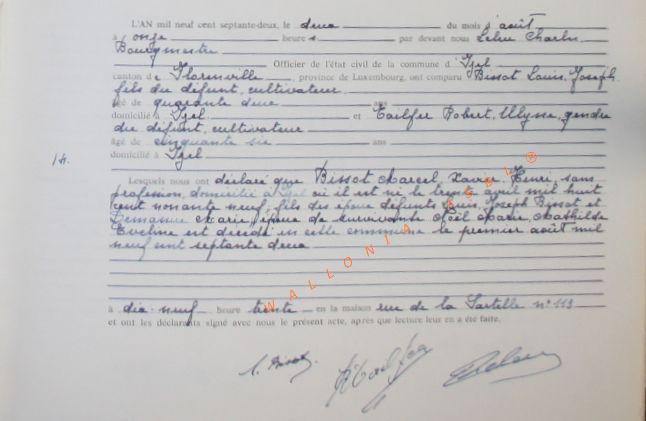 L'AN mil neuf cent septante-deux, le deux du mois d'août
à onze heures par devant nous Lelieu Charles
Bourgmestre
Officier de l'état civil de la commune d'Izel
canton de Florenville, province de Luxembourg, ont comparu Bissot Louis, Joseph
fils du défunt, cultivateur
âgé de quarante deux ans
domicilié à Izel et Tailfer Robert, Ulysse, gendre
du défunt, cultivateur
âgé de cinquante six ans
14. domicilié à Izel
Lesquels nous ont déclaré que Bissot Marcel Xavier Henri, sans
profession, domicilié à Izel où il est né le trente avril mil huit
cent nonante neuf, fils des époux défunts Joseph Bissot et
Marie, époux de survivante Noël Marie, Mathilde
Eveline est décédé en cette commune le premier août mil
neuf cent septante deux
à dix-neuf heure trente en la maison rue de la n° 113
et ont les déclarants signé avec nous le présent acte, après que lecture leur en a été faite.
WALLONIA ASBL ®